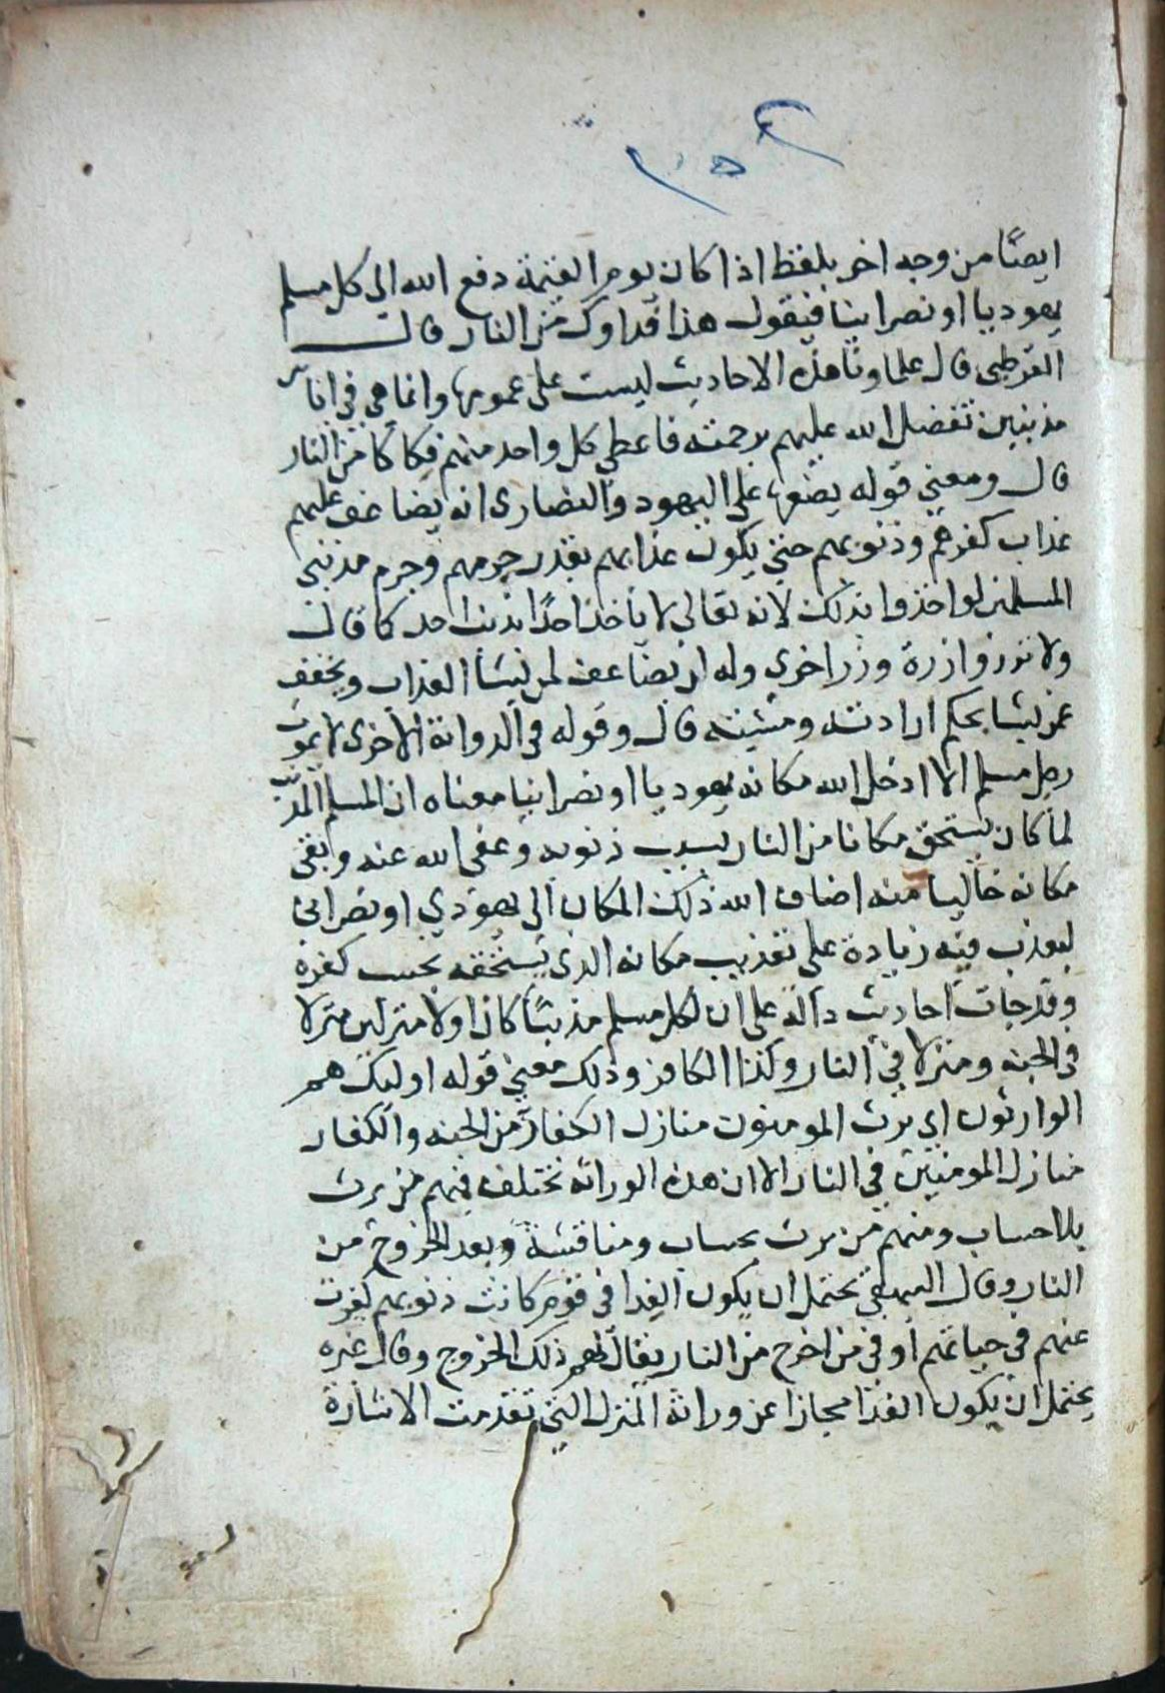 ايضًا من وجه اخر بلفظ اذا كان يوم القيمة دفع الله الي كل مسلم
يهوديا او نصرانيا فيقول هذا فداوك من النار قال
القرطبى قال علماونا هذه الاحاديث ليست على عمومها وانما هي في اناس
مذنبين تفضل الله عليهم برحمته فاعطي كل واحد منهم فكاكا من النار
قال ومعني قوله يضعها على اليهود والنصارى انه يضاعف عليهم
عذاب كفرهم وذنوبهم حتي يكون عذابهم بقدر جرمهم وجرم مذنبي
المسلمين لو اخذوا بذلك لانه تعالي لا ياخذ احدًا بذنب احد كما قال
ولا تزر وازرة وزر اخري وله ان يضاعف لمن يشا العذاب ويخفف
عمن يشا بحكم ارادته ومشيته قال وقوله في الرواية الاخرى لا يموت
رجل مسلم الا ادخل الله مكانه يهوديا او نصرانيا معناه ان المسلم المذنب
لما كان يستحق مكانا من النار بسبب ذنوبه وعفى الله عنه وبقى
مكانه خاليا منه اضاف الله ذلك المكان الى يهودي او نصرانى
ليعذب فيه زيادة على تعذيب مكانه الذى يستحقه بحسب كفره
وقد جات احاديث دالة على ان لكل مسلم مذنبًا كان اولا منزلين منزلا
فى الجنة ومنزلا في النار وكذا الكافر وذلك معني قوله اوليك هم
الوارثون اي يرث المومنون منازل الكفار من الجنه والكفار
منازل المومنين في النار الا ان هذه الوراثه تختلف فمنهم من يرث
بلا حساب ومنهم من يرث بحساب ومناقشة وبعد الخروج من
النار وقال البيهقي يحتمل ان يكون الفدا فى قوم كانت ذنوبهم كفرت
عنهم فى حياتهم او فى من اخرج من النار يقال لهم ذلك الخروج وقال غيره
يحتمل ان يكون الفدا مجازا عن وراثة المنزل التي تقدمت الاشارة